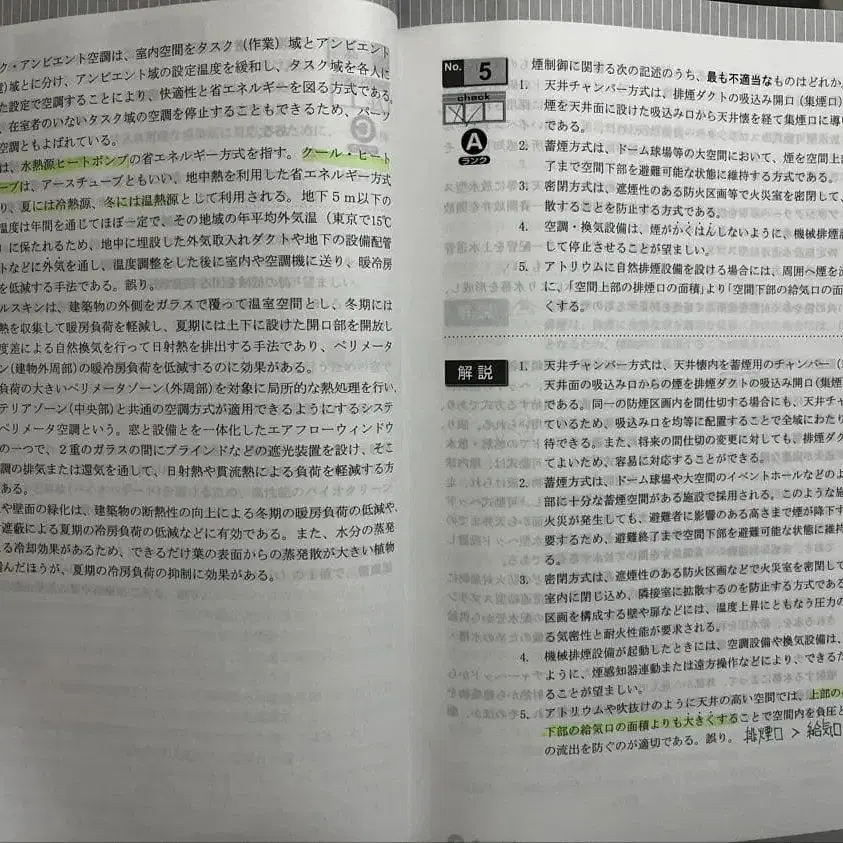 ク・アンビエント空調は、室内空間をタスク（作業）域とアンビエント
)域とに分け、アンビエント域の設定温度を緩和し、タスク域を各人に
た設定で空調することにより、快適性と省エネルギーを図る方式である。
、在室者のいないタスク域の空調を停止することもできるため、パーソ
空調ともよばれている。
は、水熱源ヒートポンプの省エネルギー方式を指す。クール・ヒート
ーブは、アースチューブともいい、地中熱を利用した省エネルギー方式
り、夏には冷熱源、冬には温熱源として利用される。地下5m以下の
温度は年間を通じてほぼ一定で、その地域の年平均外気温（東京で15℃
）に保たれるため、地中に埋設した外気取入れダクトや地下の設備配管
トなどに外気を通し、温度調整をした後に室内や空調機に送り、暖冷房
を低減する手法である。誤り。
ルスキンは、建築物の外側をガラスで覆って温室空間とし、冬期には
熱を収集して暖房負荷を軽減し、夏期には上下に設けた開口部を開放し
度差による自然換気を行って日射熱を排出する手法であり、ペリメータ
ン(建物外周部)の暖冷房負荷を低減するのに効果がある。
負荷の大きいペリメータゾーン(外周部)を対象に局所的な熱処理を行い、
テリアゾーン(中央部)と共通の空調方式が適用できるようにするシステ
ペリメータ空調という。窓と設備とを一体化したエアフローウィンドウ
の一つで、2重のガラスの間にブラインドなどの遮光装置を設け、そこ
調の排気または還気を通して、日射熱や貫流熱による負荷を軽減する方
ある。
や壁面の緑化は、建築物の断熱性の向上による冬期の暖房負荷の低減や、
遮蔽による夏期の冷房負荷の低減などに有効である。また、水分の蒸発
る冷却効果があるため、できるだけ葉の表面からの蒸発散が大きい植物
んだほうが、夏期の冷房負荷の抑制に効果がある。
No. 5
check
A
ランク
煙制御に関する次の記述のうち、最も不適当なものはどれか。
1. 天井チャンバー方式は、排煙ダクトの吸込み開口（集煙口）
煙を天井面に設けた吸込み口から天井懐を経て集煙口に導い
である。
2. 蓄煙方式は、ドーム球場等の大空間において、煙を空間上部
了まで空間下部を避難可能な状態に維持する方式である。
3. 密閉方式は、遮煙性のある防火区画等で火災室を密閉して、
散することを防止する方式である。
4. 空調・換気設備は、煙がかくはんしないように、機械排煙設
して停止させることが望ましい。
5. アトリウムに自然排煙設備を設ける場合には、周囲へ煙を流
に、「空間上部の排煙口の面積」より「空間下部の給気口の面
くする。
解説
1. 天井チャンバー方式は、天井懐内を蓄煙用のチャンバー（
天井面の吸込み口からの煙を排煙ダクトの吸込み開口(集煙
である。同一の防煙区画内を間仕切する場合にも、天井チャ
ているため、吸込み口を均等に配置することで全域にわたり
待できる。また、将来の間仕切の変更に対しても、排煙ダク
てよいため、容易に対応することができる。
2. 蓄煙方式は、ドーム球場や大空間のイベントホールなどのよ
部に十分な蓄煙空間がある施設で採用される。このような施
火災が発生しても、避難者に影響のある高さまで煙が降下す
要するため、避難終了まで空間下部を避難可能な状態に維持
る。
3. 密閉方式は、遮煙性のある防火区画などで火災室を密閉して
室内に閉じ込め、隣接室に拡散するのを防止する方式である
区画を構成する壁や扉などには、温度上昇にともなう圧力の
る気密性と耐火性能が要求される。
4. 機械排煙設備が起動したときには、空調設備や換気設備は、
ように、煙感知器連動または遠方操作などにより、できるだ
ることが望ましい。
5. アトリウムや吹抜けのように天井の高い空間では、上部の
下部の給気口の面積よりも大きくすることで空間内を負圧と
の流出を防ぐのが適切である。誤り。 排煙口 > 給気口